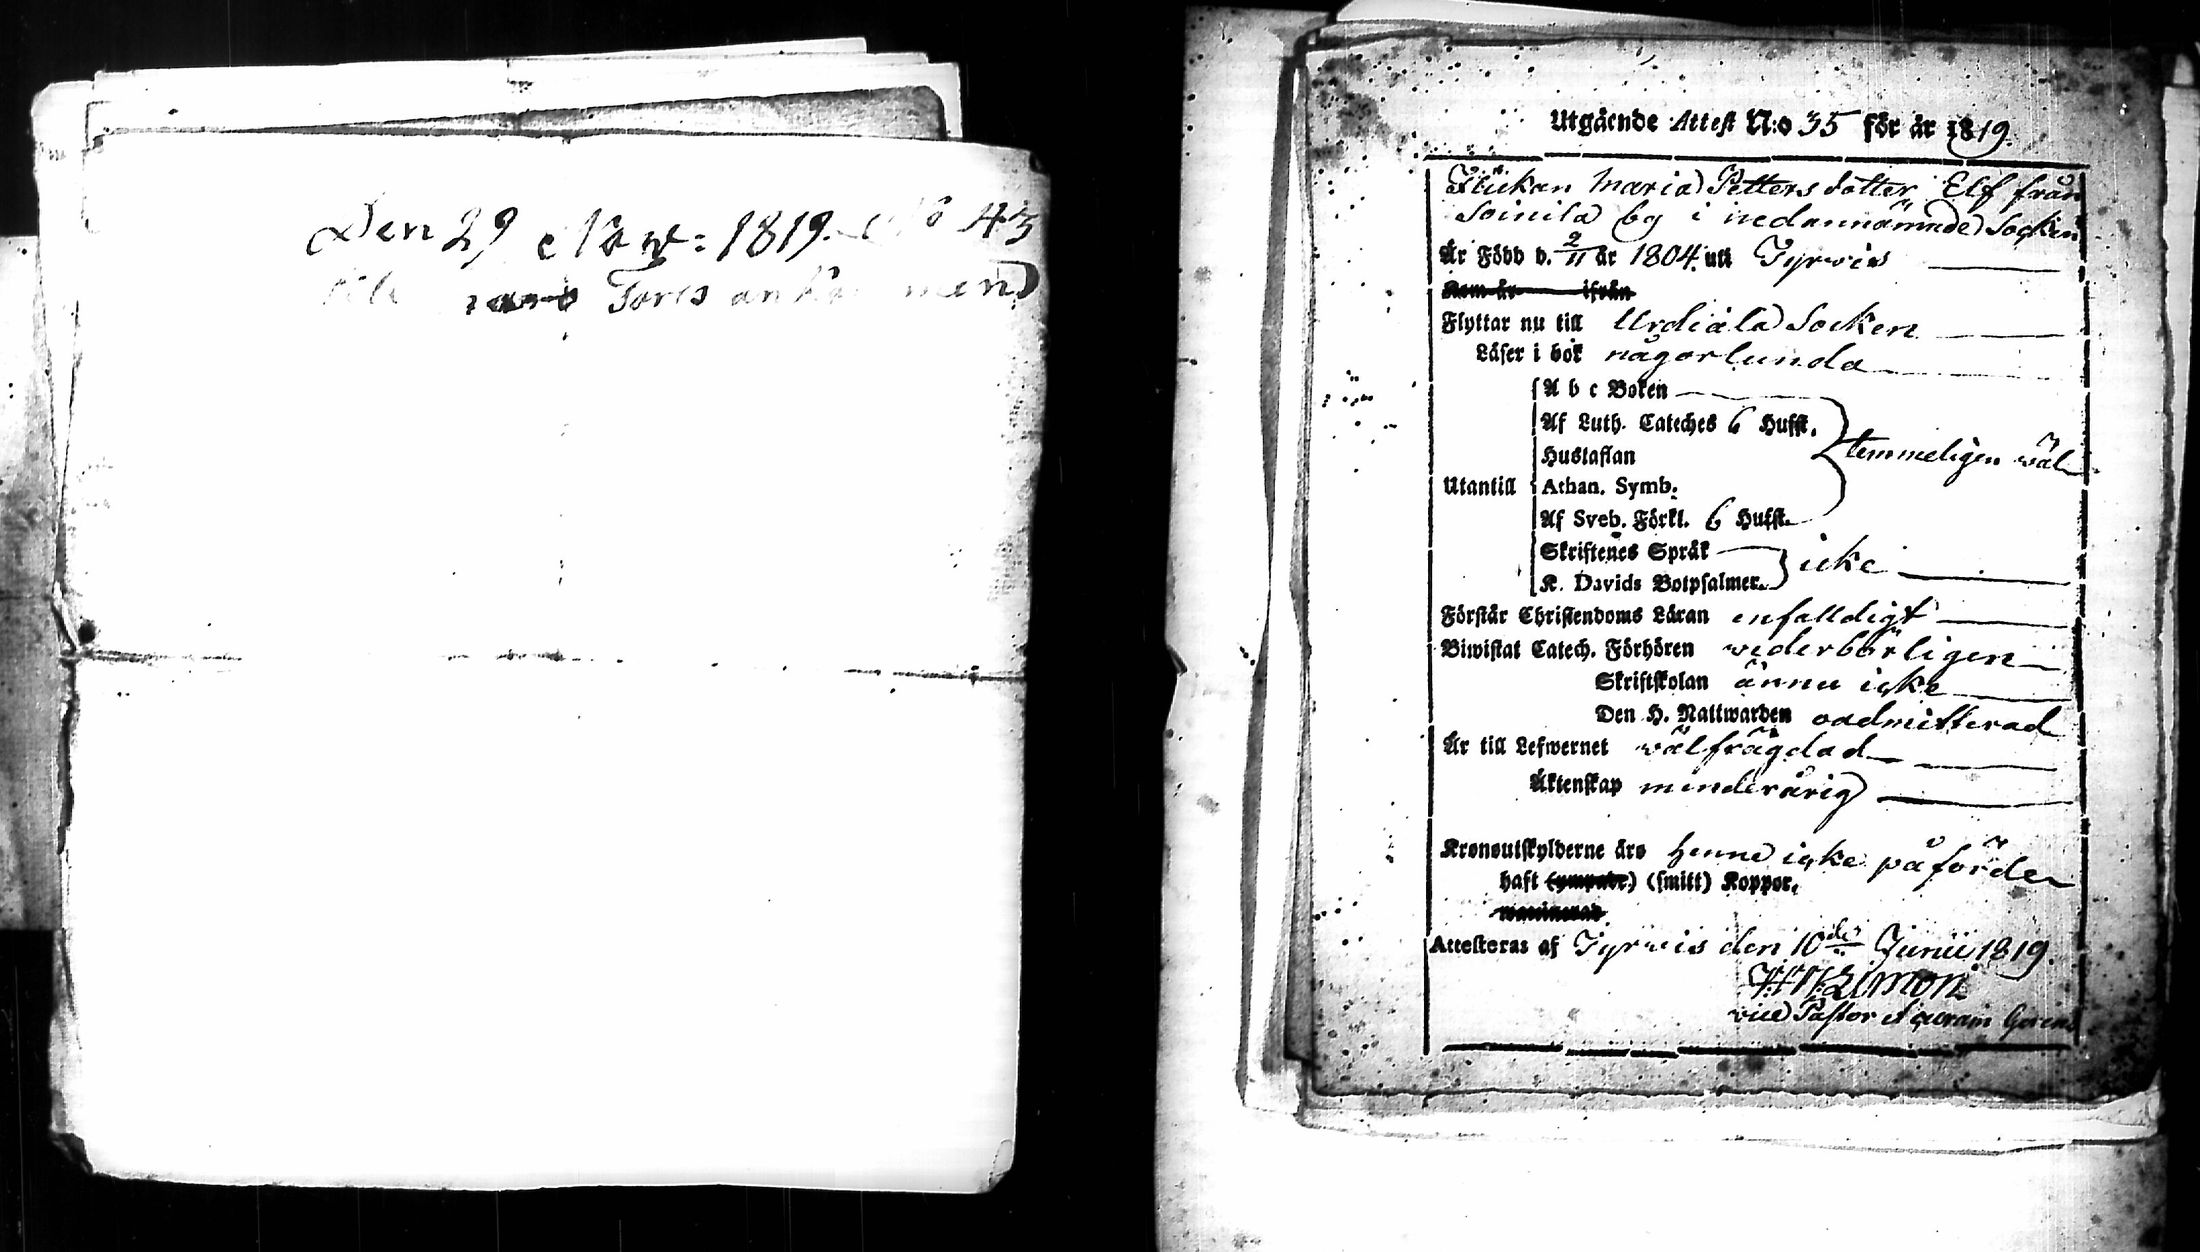 Den 29 Nov: 1819. No 43
Tors
Utgående Attest N:o 35 för år 1819.
Flickan Maria Pettersdotter Elf från
Soinila by i nedannämnde Socken
Är Född d. 2/11 år 1804. uti Tyrvis
Kom år ifrån
Flyttar nu till Urdiala Socken
Läser i bok någorlunda
A b c Boken
Af Luth. Cateches 6 Hufst.
Hustaflan
temmeligen wäl
Utantill Athan. Symb.
Af Sveb. Förkl. 6 Hufst.
Skriftenes Språk
icke
K. Davids Botpsalmer
Förstår Christendoms Läran enfalldigt
Biwistat Catech. Förhören wederbörligen
Skriftskolan ännu icke
Den H. Nattwarden oadmitterad
Är till Lefwernet wälfrägdad
Äktenskap minderårig
Kronoutskylderne äro henne icke påförde
haft (ympade) (smitt) Koppor.
waccinerad
Attesteras af Tyrvis den 10de Junii 1819.
vice Pastor et curam Gerens